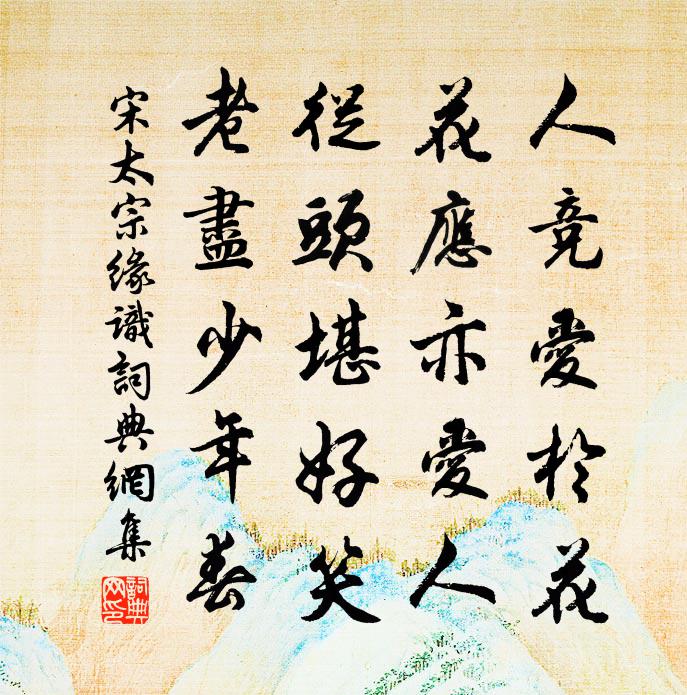 人竞愛於花
花應亦愛人
從頭堪好笑
老盡少年春
宋太宗緣識詞典網集
詞典網印